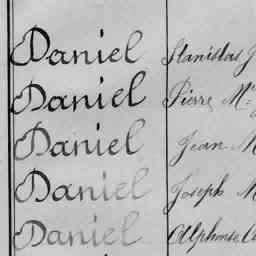 Daniel Stanislas J
Daniel Pierre M
Daniel Jean M
Daniel Joseph M
Daniel Alphonse